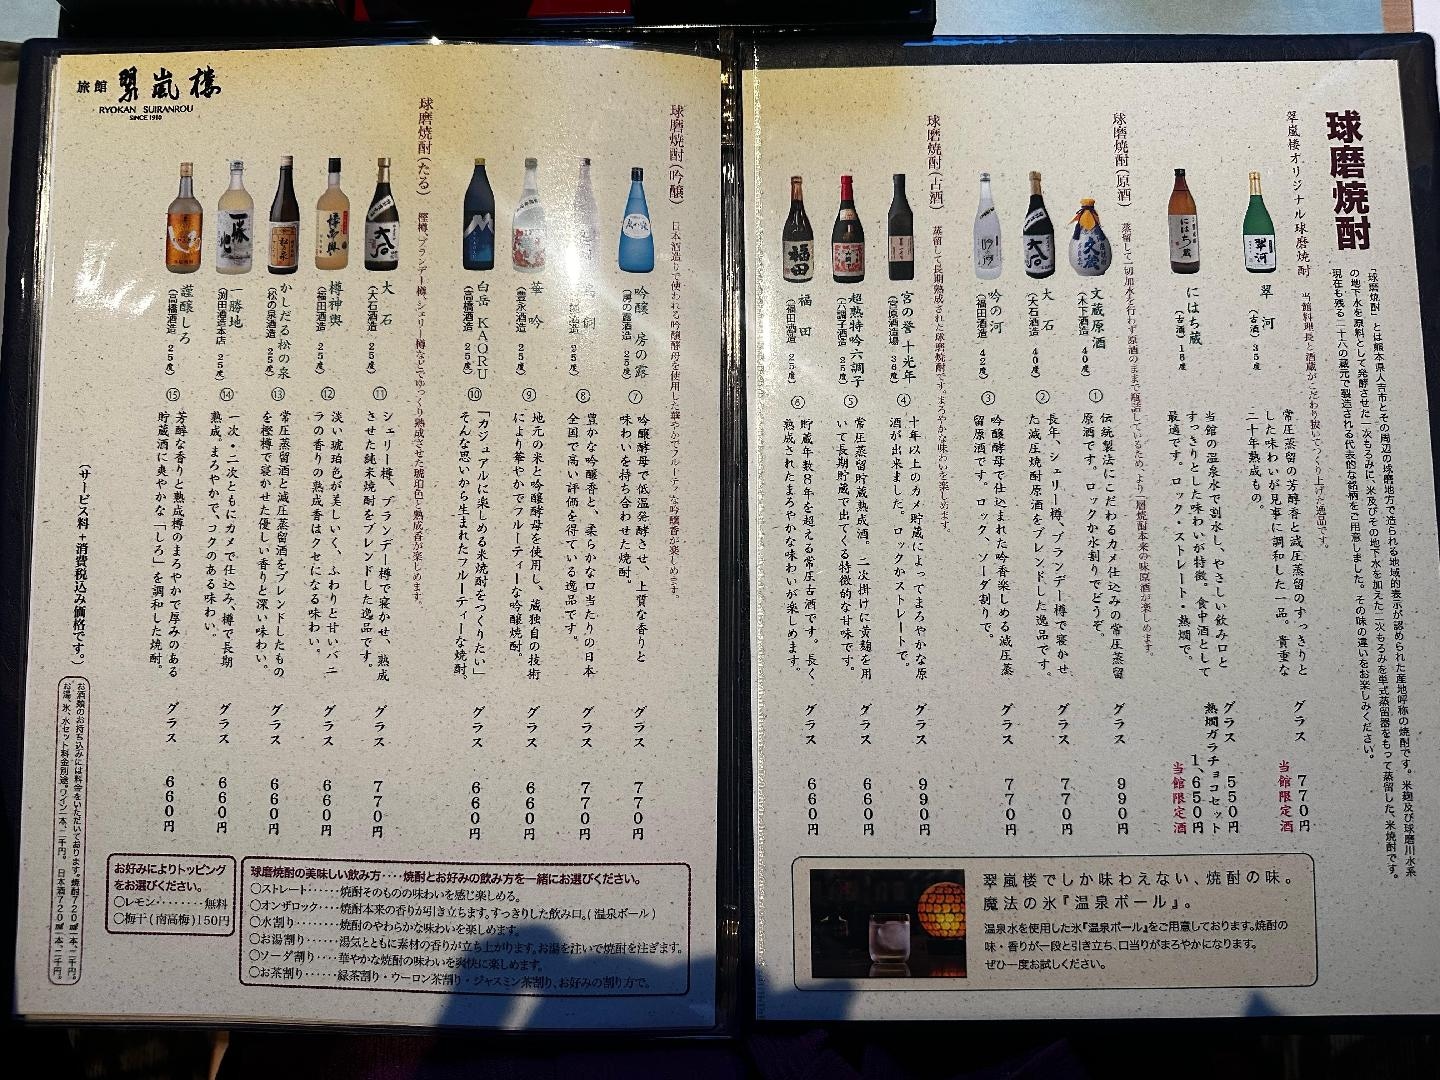 球磨焼酎
「球磨焼酎」とは熊本県人吉市とその周辺の球磨地方で造られる地域的表示が認められた産地呼称の焼酎です。米麹及び球磨川水系
の地下水を原料として発酵させた一次もろみに、米及びその地下水を加えた二次もろみを単式蒸留器をもって蒸留した、米焼酎です。
現在も残る二十八の蔵元で製造される代表的な銘柄をご用意しました。その味の違いをお楽しみください。
翠嵐楼オリジナル球磨焼酎
当館料理長と酒蔵がこだわり抜いてつくり上げた逸品です。
翠河
(古酒) 35度
常圧蒸留の芳醇香と減圧蒸留のすっきりと
した味わいが見事に調和した一品。貴重な
二十年熟成もの。
グラス 770円
当館限定酒
にはち蔵
(古酒) 18度
当館の温泉水で割水し、やさしい飲み口と
すっきりとした味わいが特徴。食中酒として
最適です。ロック・ストレート・熱燗で。
グラス 550円
熱燗ガラチョコセット
1、650円
当館限定酒
球磨焼酎(原酒)
蒸留して一切加水を行わず原酒のままで瓶詰しているため、より一層焼酎本来の味原酒が楽しめます。
文蔵原酒
(木下酒造) 40度
① 伝統製法にこだわるカメ仕込みの常圧蒸留
原酒です。ロックか水割りでどうぞ。
グラス 990円
大石
(大石酒造) 40度
② 長年、シェリー樽、ブランデー樽で寝かせ
た減圧焼酎原酒をブレンドした逸品です。
グラス 770円
吟の河
42度
③ 吟醸酵母で仕込まれた吟香楽しめる減圧蒸
留原酒です。ロック、ソーダ割りで。
グラス 770円
球磨焼酎(古酒)
蒸留して長期熟成された球磨焼酎です。まろやかな味わいを楽しめます。
宮の誉 十光年
(宮原酒造場) 38度
④ 十年以上のカメ貯蔵によってまろやかな原
酒が出来ました。ロックかストレートで。
グラス 990円
超熟特吟六調子
(六調子酒造) 25度
⑤ 常圧蒸留貯蔵熟成酒。二次掛けに黄麹を用
いて長期貯蔵で出てくる特徴的な甘味です。
グラス 660円
福田
(福田酒造) 25度
⑥ 貯蔵年数8年を超える常圧古酒です。長く
熟成されたまろやかな味わいが楽しめます。
グラス 660円
翠嵐楼でしか味わえない、焼酎の味。
魔法の氷『温泉ボール』。
温泉水を使用した氷『温泉ボール』をご用意しております。焼酎の
味・香りが一段と引き立ち、口当りがまろやかになります。
ぜひ一度お試しください。
旅館 翠嵐楼
RYOKAN SUIRANROU
SINCE 1910
球磨焼酎(吟醸)
日本酒造りで使われる吟醸酵母を使用した華やかでフルーティな吟醸香が楽しめます。
吟醸 房の露
(房の露酒造) 25度
⑦ 吟醸酵母で低温発酵させ、上質な香りと
味わいを持ち合わせた焼酎。
グラス 770円
25度
⑧ 豊かな吟醸香と、柔らかな口当たりの日本
全国で高い評価を得ている逸品です。
グラス 660円
華吟
(豊永酒造) 25度
⑨ 地元の米と吟醸酵母を使用し、蔵独自の技術
により華やかでフルーティーな吟醸焼酎。
グラス 660円
白岳 KAORU
(高橋酒造) 25度
⑩ 「カジュアルに楽しめる米焼酎をつくりたい」
そんな思いから生まれたフルーティーな焼酎。
グラス 660円
球磨焼酎(たる)
樫樽、ブランデー樽、シェリー樽などでゆっくり熟成させた琥珀色と熟成香が楽しめます。
大石
(大石酒造) 25度
⑪ シェリー樽、ブランデー樽で寝かせ、熟成
させた純米焼酎をブレンドした逸品です。
グラス 770円
樽神輿
(福田酒造) 25度
⑫ 淡い琥珀色が美しいく、ふわりと甘いバニ
ラの香りの熟成香はクセになる味わい。
グラス 660円
かしだる松の泉
(松の泉酒造) 25度
⑬ 常圧蒸留酒と減圧蒸留酒をブレンドしたもの
を樫樽で寝かせた優しい香りと深い味わい。
グラス 660円
一勝地
(渕田酒造本店) 25度
⑭ 一次・二次ともにカメで仕込み、樽で長期
熟成。まろやかで、コクのある味わい。
グラス 660円
謹醸しろ
(高橋酒造) 25度
⑮ 芳醇な香りと熟成樽のまろやかで厚みのある
貯蔵酒に爽やかな「しろ」を調和した焼酎。
グラス 660円
(サービス料+消費税込み価格です。)
お酒類のお持ち込みには料金をいただいております。焼酎720㎖一本、二千円。
お湯、氷、水セット料金別途。ワイン一本、二千円。 日本酒720㎖一本、二千円。
お好みによりトッピング
をお選びください。
○レモン‥‥‥‥無料
○梅干(南高梅)150円
球磨焼酎の美味しい飲み方‥‥焼酎とお好みの飲み方を一緒にお選びください。
○ストレート‥‥‥焼酎そのものの味わいを感じ楽しめる。
○オンザロック‥‥焼酎本来の香りが引き立ちます。すっきりした飲み口。(温泉ボール)
○水割り‥‥‥‥焼酎のやわらかな味わいを楽しめます。
○お湯割り‥‥‥湯気とともに素材の香りが立ち上がります。お湯を注いで焼酎を注ぎます。
○ソーダ割り‥‥華やかな焼酎の味わいを爽快に楽しめます。
○お茶割り‥‥‥緑茶割り・ウーロン茶割り・ジャスミン茶割り、お好みの割り方で。